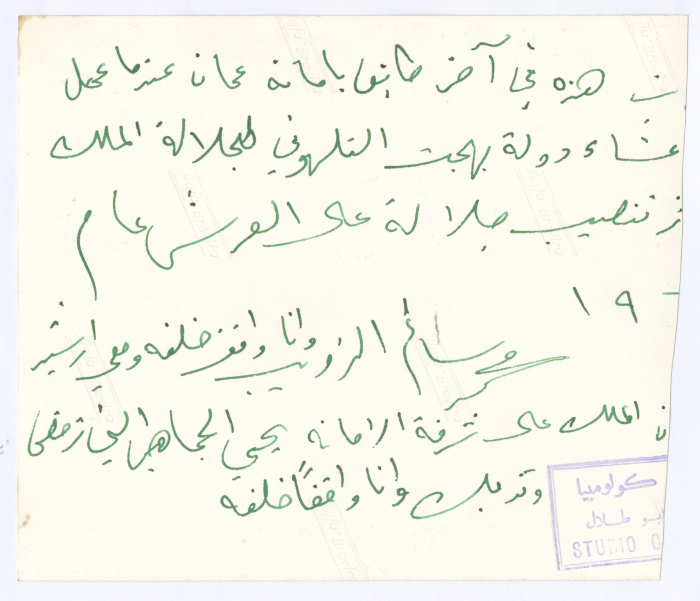 هذه في آخر طابق بامانة عمان عندما عمل
عشاء دولة بهجت التلهوني لجلالة الملك
تنصيب جلالة على العرش عام
١٩
محمد سالم الذويب وانا واقف خلفه ومعي ارشيد
الملك على شرفة الامانه يحيي الجماهير التي
وانا واقفاً خلفه
كولومبيا
ابو طادل
STUDIO C